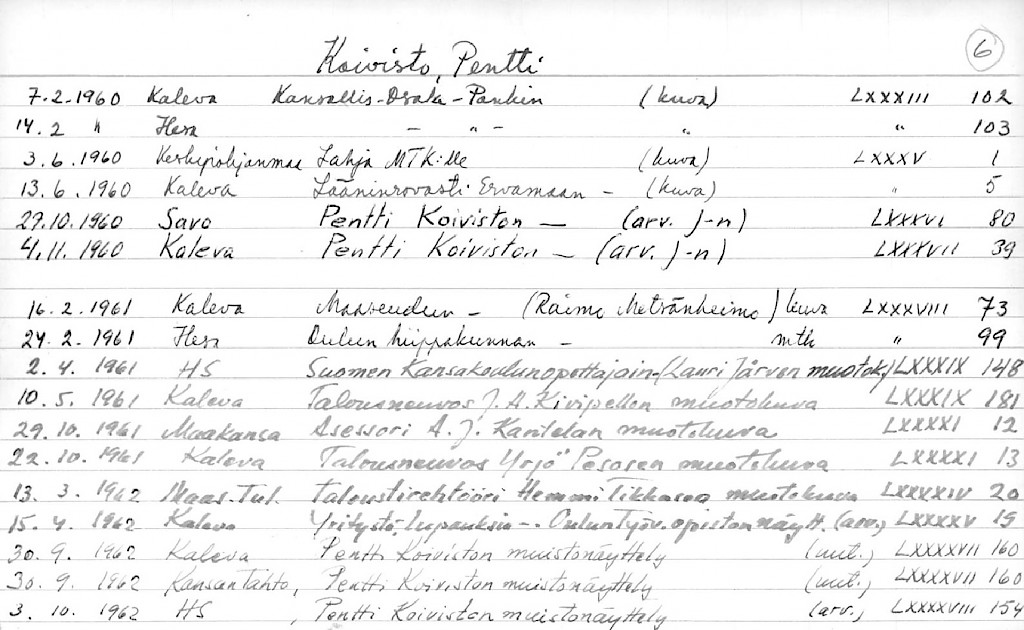 6
Koivisto, Pentti
7.2.1960 Kaleva Kansallis-Osake-Pankin (kuva) LXXXIII 102
14.2 " Hesa - " - " " 103
3.6.1960 Keskipohjanmaa Lahja MTK:lle (kuva) LXXXV 1
13.6.1960 Kaleva Lääninrovasti Ervamaan - (kuva) " 5
27.10.1960 Savo Pentti Koiviston - (arv. J-n) LXXXVI 80
4.11.1960 Kaleva Pentti Koiviston - (arv. J-n) LXXXVII 39
16.2.1961 Kaleva Maaseudun - (Raimo Metsänheimo) kuva LXXXVIII 73
24.2.1961 Hesa Oulun hiippakunnan - mtk " 99
2.4.1961 HS Suomen Kansakoulunopettajain-(Lauri Järven muotok.) LXXXIX 148
10.5.1961 Kaleva Talousneuvos J.A. Kivipellon muotokuva LXXXIX 181
29.10.1961 Maakansa Asessori A.J. Kantelan muotokuva LXXXXI 12
22.10.1961 Kaleva Talousneuvos Yrjö Pesosen muotokuva LXXXXI 13
13.3.1962 Maas.Tul. Taloustirehtööri Hemmi Tikkasen muotokuva LXXXXIV 20
15.4.1962 Kaleva Yritystä, lupauksia -. Oulun Työv.opiston näytt. (arv.) LXXXXV 15
30.9.1962 Kaleva Pentti Koiviston muistonäyttely (uut.) LXXXXVII 160
30.9.1962 Kansan Tahto, Pentti Koiviston muistonäyttely (uut.) LXXXXVII 160
3.10.1962 HS, Pentti Koiviston muistonäyttely (arv.) LXXXXVIII 154